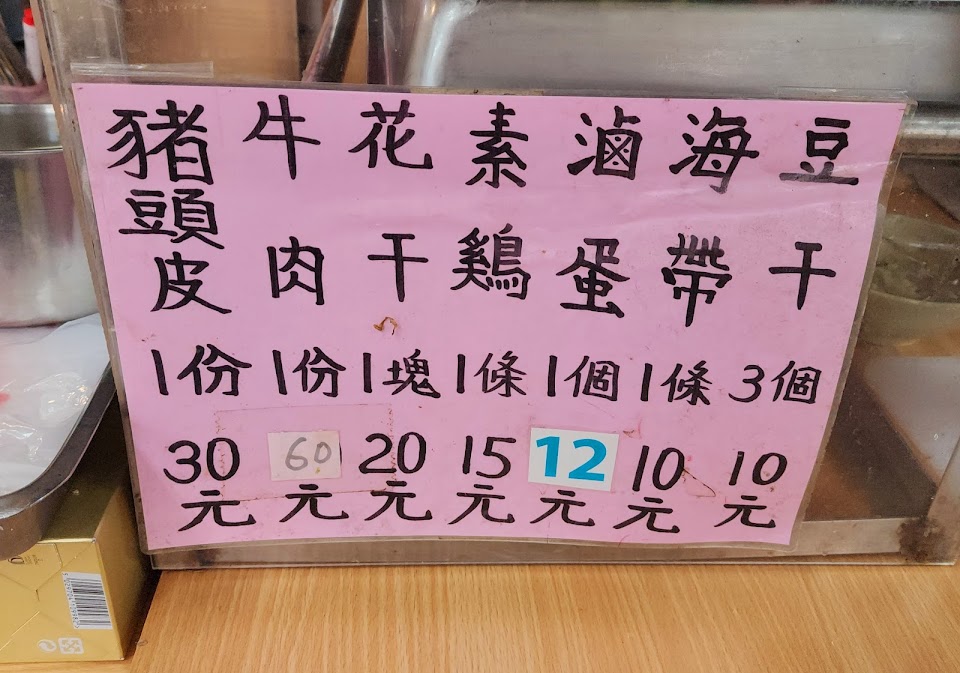 豆干 3個 10元
海帶 1條 10元
滷蛋 1個 12元
素鷄 1條 15元
花干 1塊 20元
牛肉 1份 60元
豬頭皮 1份 30元